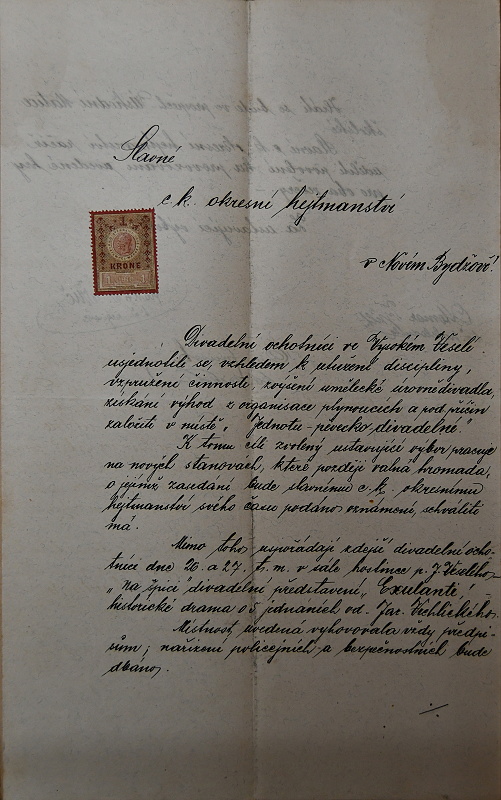 Slavné
c. k. okresní hejtmanství
v Novém Bydžově!
1
KRONE
Divadelní ochotníci ve Vysokém Veselí
usjednotili se, vzhledem k utužení disciplíny,
vzpružení činnosti, zvýšení umělecké úrovně divadla,
získání výhod z organisace plynoucích a pod. příčin
založiti v místě „Jednotu pěvecko divadelní."
K tomu cíli zvolený ustavující výbor pracuje
na nových stanovách, které později valná hromada,
o jejímž zasedání bude slavnému c. k. okresnímu
hejtmanství svého času podáno oznámení, schváliti
má.
Mimo toho uspořádají zdejší divadelní ocho-
tníci dne 26. a 27. t. m. v sále hostince p. J. Veselého
„Na špici" divadelní představení „Exulanti",
historické drama o 5 jednáních od Jar. Vrchlického.
Místnost uvedená vyhovovala vždy předpi-
sům; nařízení policejních a bezpečnostních bude
dbáno.
./.